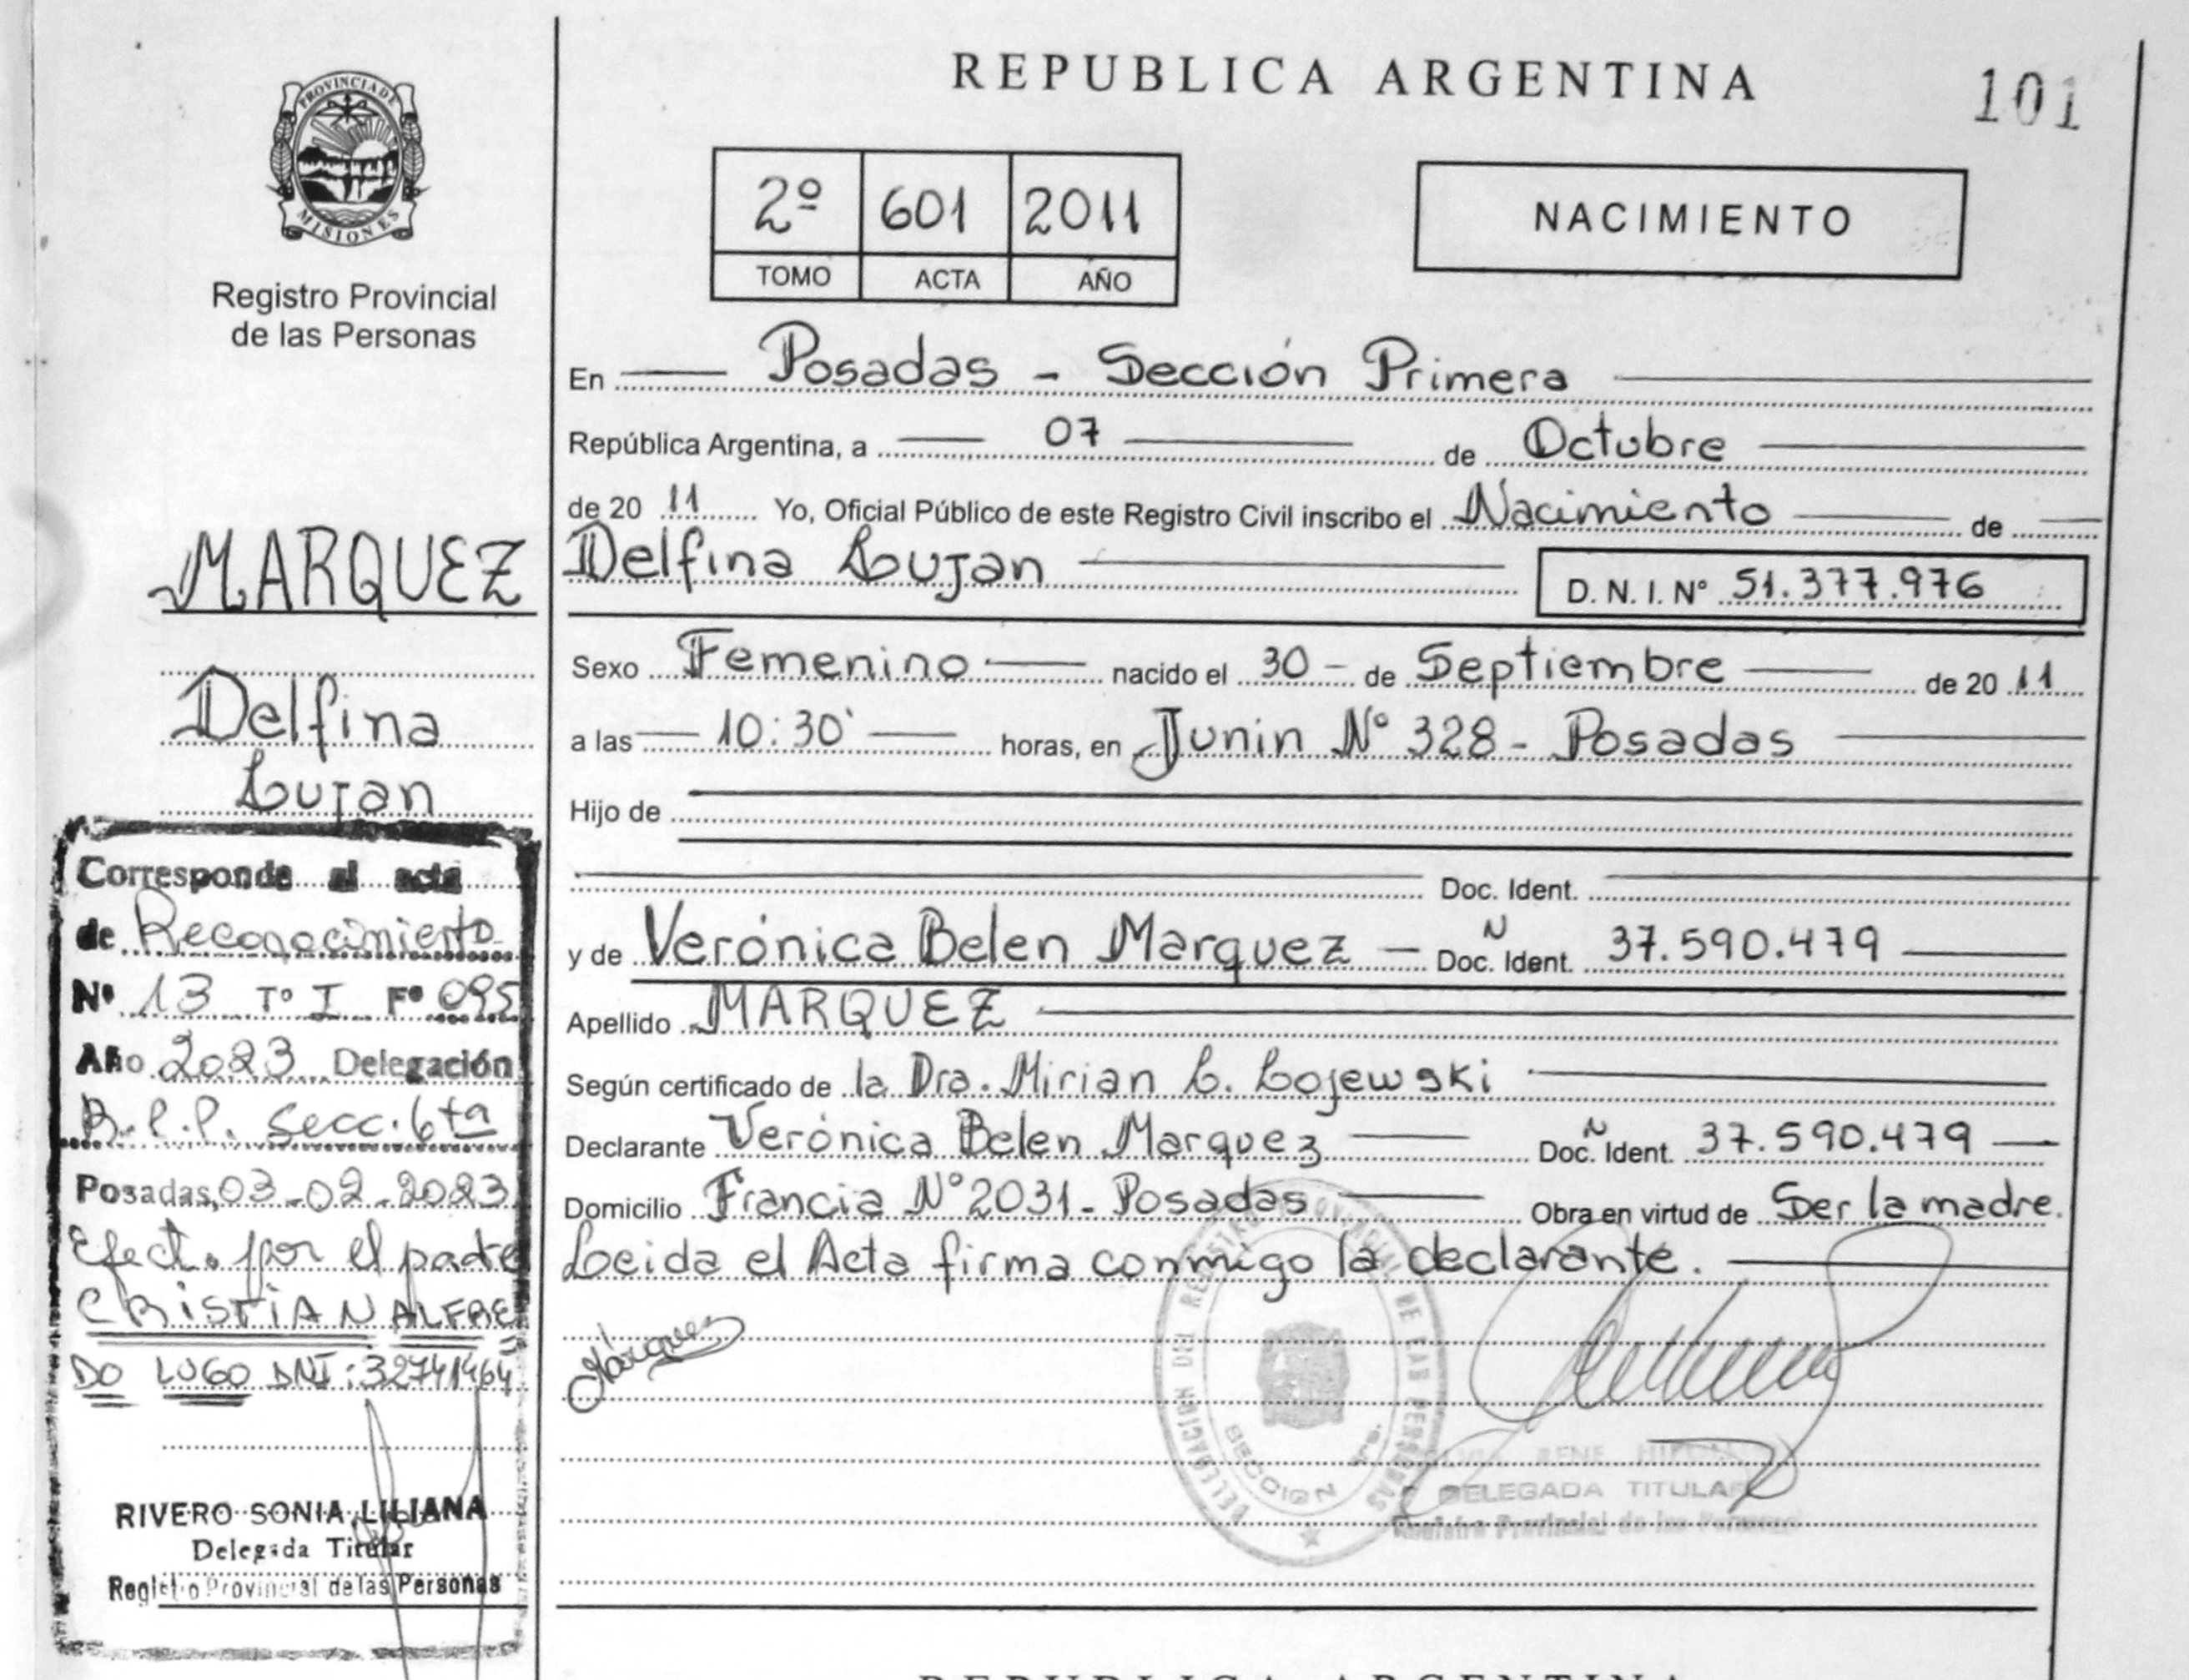 REPUBLICA ARGENTINA
101
PROVINCIA DE
MISIONES
Registro Provincial
de las Personas
2º 601 2011
TOMO ACTA AÑO
NACIMIENTO
En Posadas - Sección Primera
República Argentina, a 07 de Octubre
de 20 11 Yo, Oficial Público de este Registro Civil inscribo el Nacimiento de
Delfina Lujan D. N. I. Nº 51.377.976
Sexo Femenino nacido el 30 - de Septiembre de 20 11
a las 10:30' horas, en Junin Nº 328 - Posadas
Hijo de
Doc. Ident.
y de Verónica Belen Marquez - N Doc. Ident. 37.590.479
Apellido MARQUEZ
Según certificado de la Dra. Mirian L. Lojewski
Declarante Verónica Belen Marquez N Doc. Ident. 37.590.479
Domicilio Francia Nº 2031 - Posadas Obra en virtud de Ser la madre.
Leida el Acta firma conmigo la declarante.
Márquez
DELEGACION DEL REGISTRO PROVINCIAL DE LAS PERSONAS
SECCION 1ra.
RENE
DELEGADA TITULAR
Registro Provincial de las Personas
MARQUEZ
Delfina
Lujan
Corresponde al acta
de Reconocimiento
Nº 13 Tº I Fº 095
Año 2023 Delegación
R.P.P. Secc. 6ta
Posadas, 03-02-2023
Efect. por el padre
CRISTIAN ALFRE
DO LUGO DNI: 32741464
RIVERO SONIA LILIANA
Delegada Titular
Registro Provincial de las Personas
REPUBLICA ARGENTINA